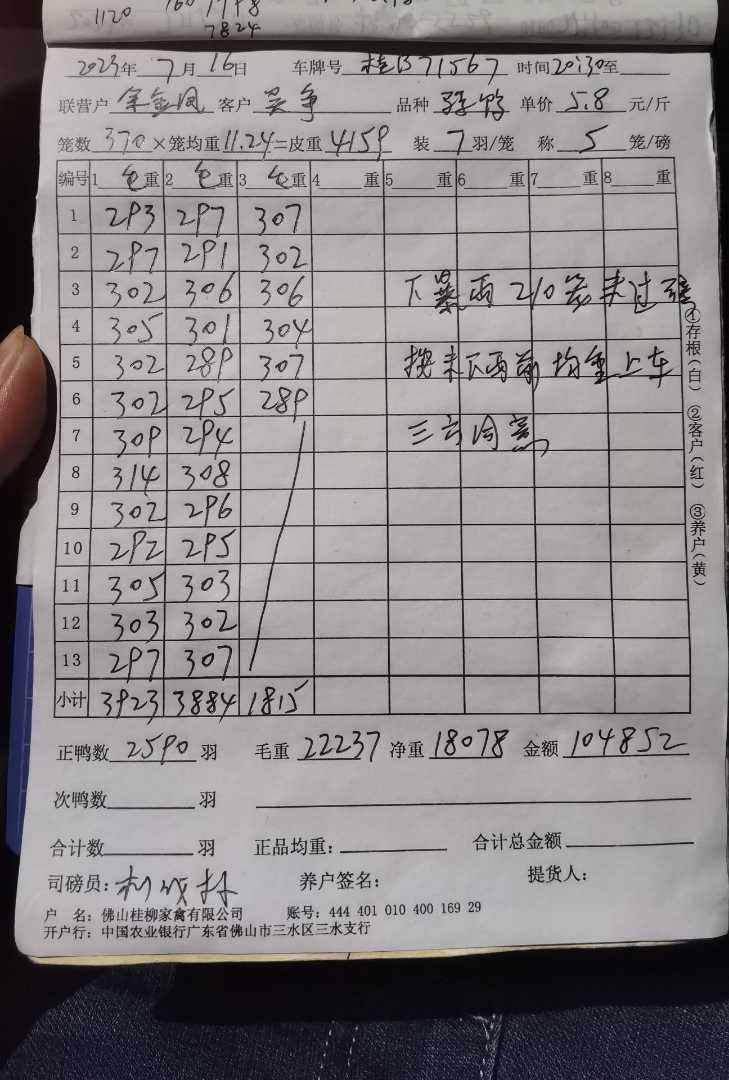 1120
7824
2023年 7月 16日 车牌号 桂B71567 时间20:30至
联营户 余金凤 客户 吴争 品种 单价 5.8 元/斤
笼数 370 ×笼均重 11.24=皮重 4159 装 7 羽/笼 称 5 笼/磅
编号 1 毛重 2 毛重 3 毛重 4 重 5 重 6 重 7 重 8 重
1 293 297 307
2 297 291 302
3 302 306 306 下暴雨 210笼未过磅
4 305 301 304
5 302 289 307 按未下雨前均重上车
6 302 295 289
7 309 294
8 314 308
9 302 296
10 292 295
11 305 303
12 303 302
13 297 307
小计 3923 3884 1815
①存根(白) ②客户(红) ③养户(黄)
正鸭数 2590 羽 毛重 22237 净重 18078 金额 104852
次鸭数 羽
合计数 羽 正品均重: 合计总金额
司磅员: 养户签名: 提货人:
户 名: 佛山桂柳家禽有限公司 账号: 444 401 010 400 169 29
开户行: 中国农业银行广东省佛山市三水区三水支行